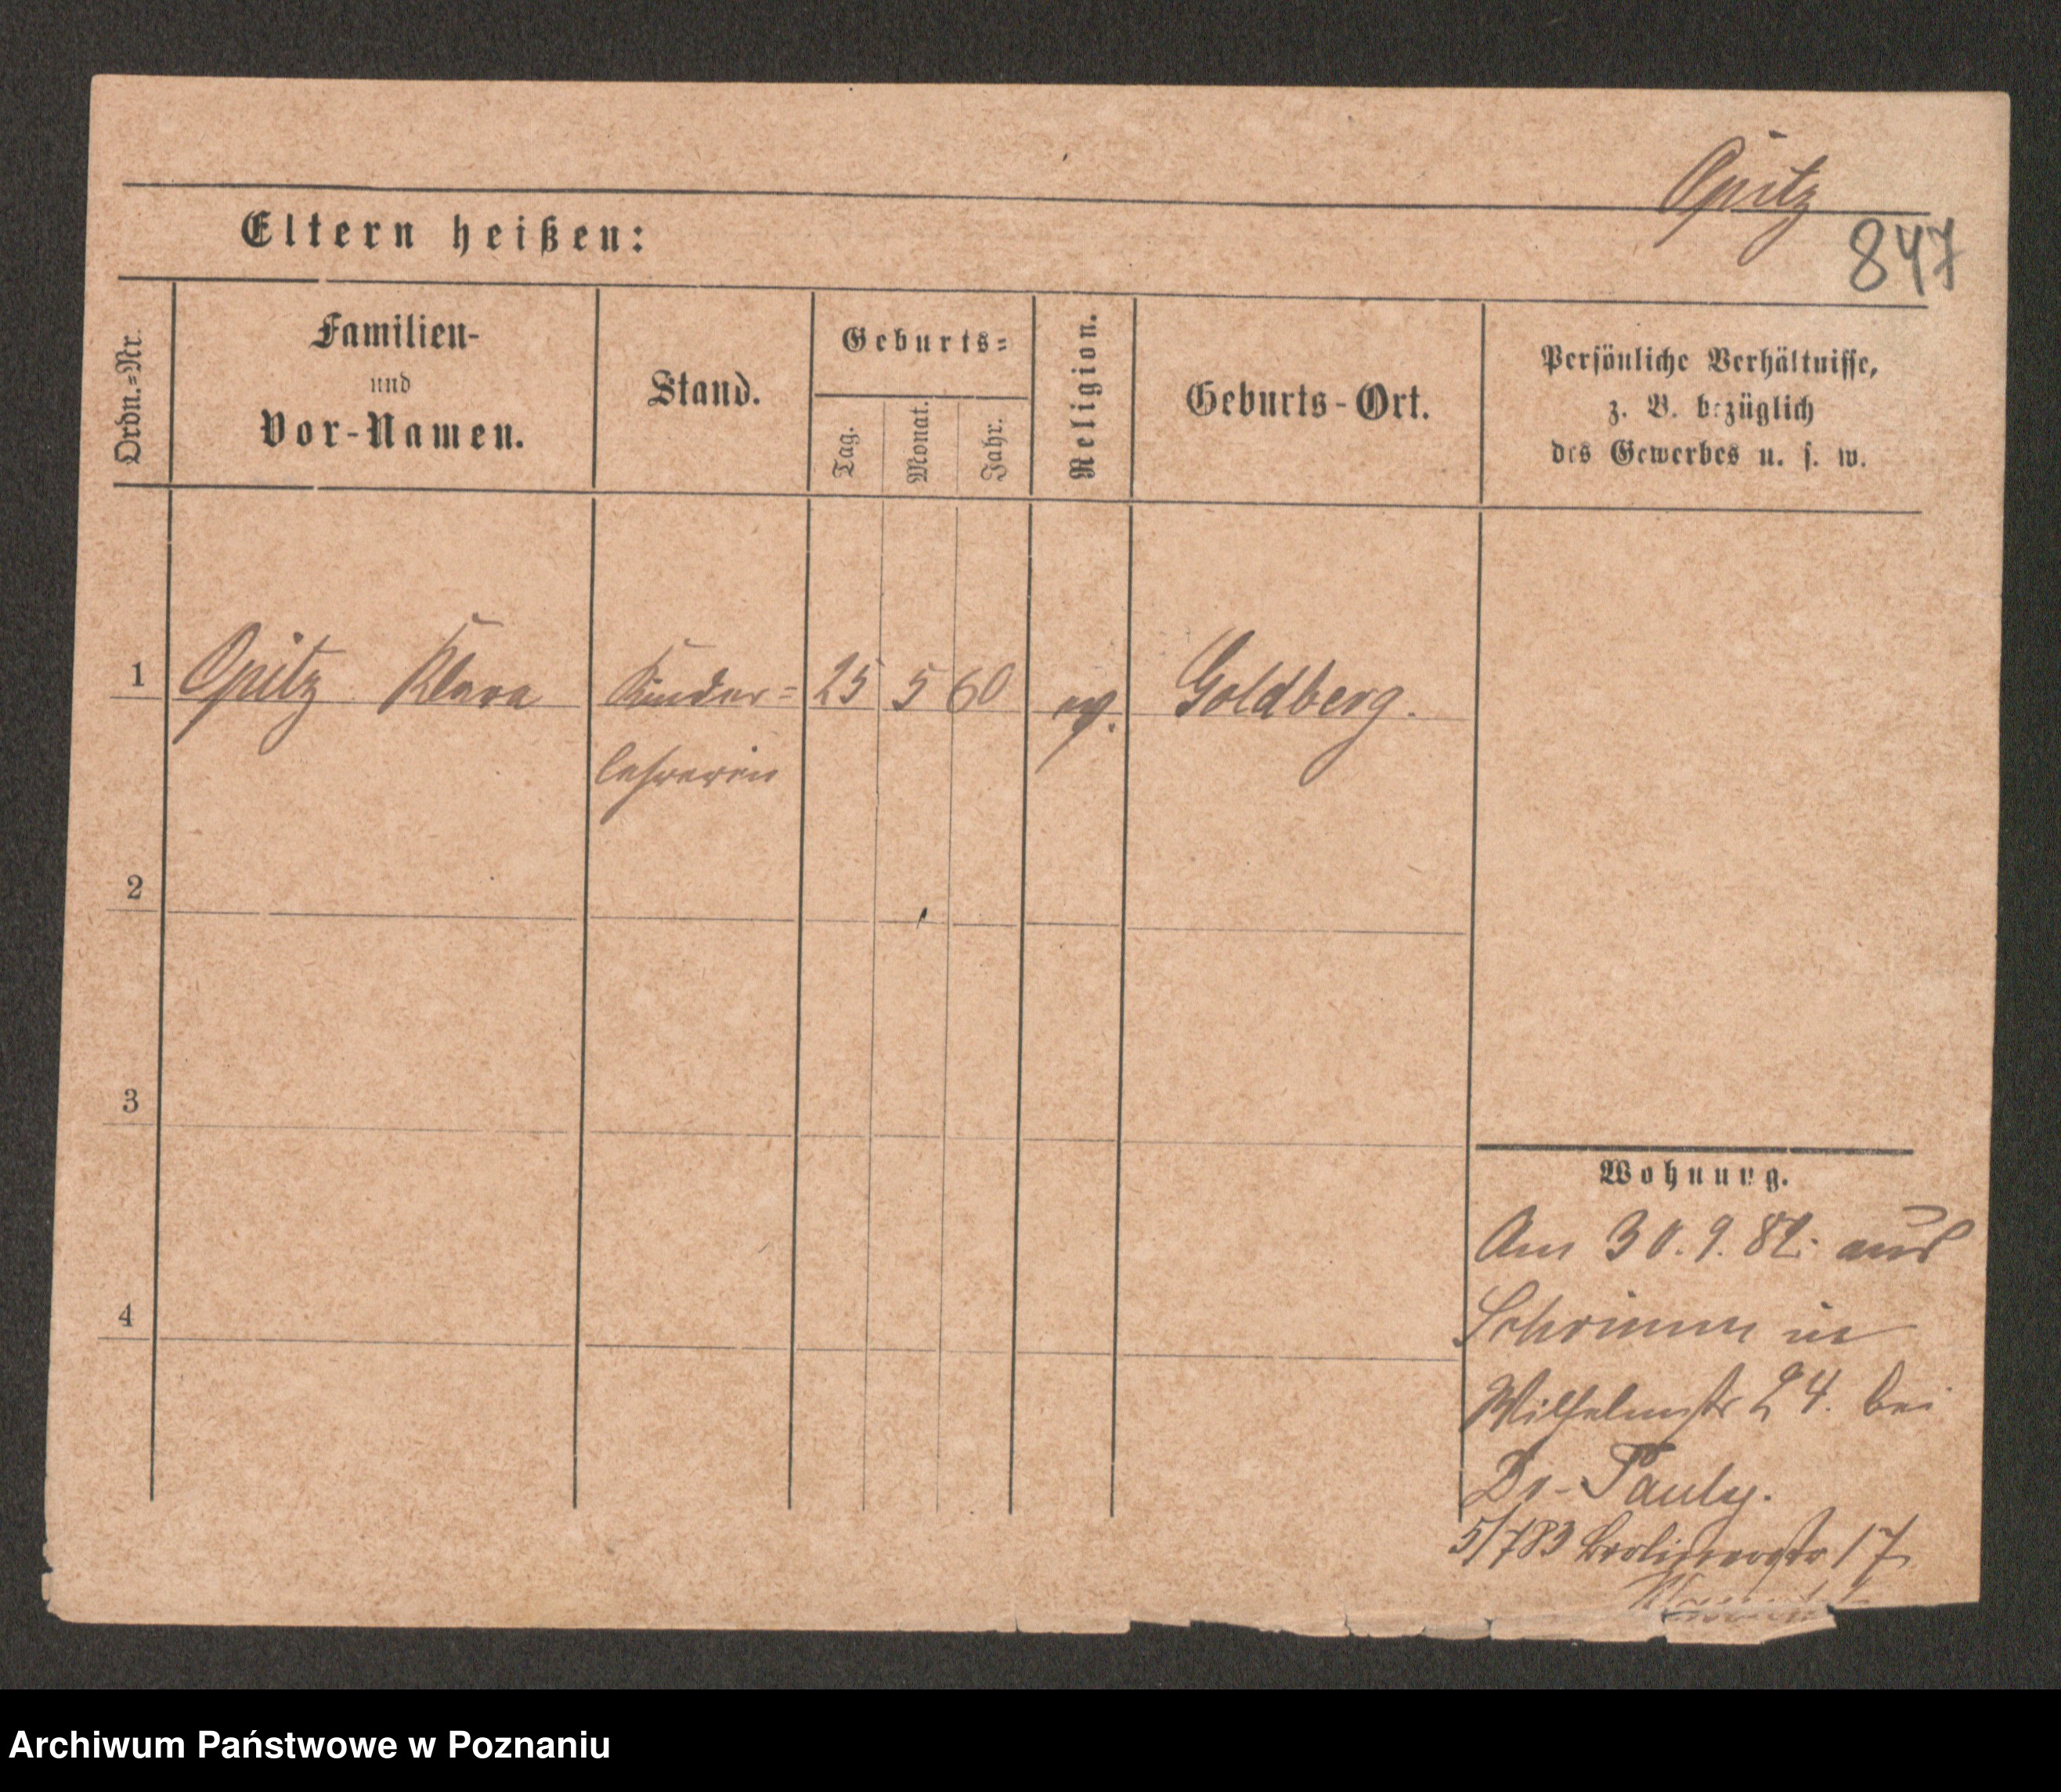 Opitz
847
Eltern heißen:
Ordn.=Nr.
Familien-
und
Vor-Namen.
Stand.
Geburts=
Tag.
Monat.
Jahr.
Religion.
Geburts-Ort.
Persönliche Verhältnisse,
z. B. bezüglich
des Gewerbes u. s. w.
1 Opitz Klara Kinder= 25 5 60 ev. Goldberg.
lehrerin
2
3
4
Wohnung.
Am 30.9.82. aus
Schrimm in
Wilhelmstr 24. bei
Dr. Pauly.
5/783 17
Archiwum Państwowe w Poznaniu